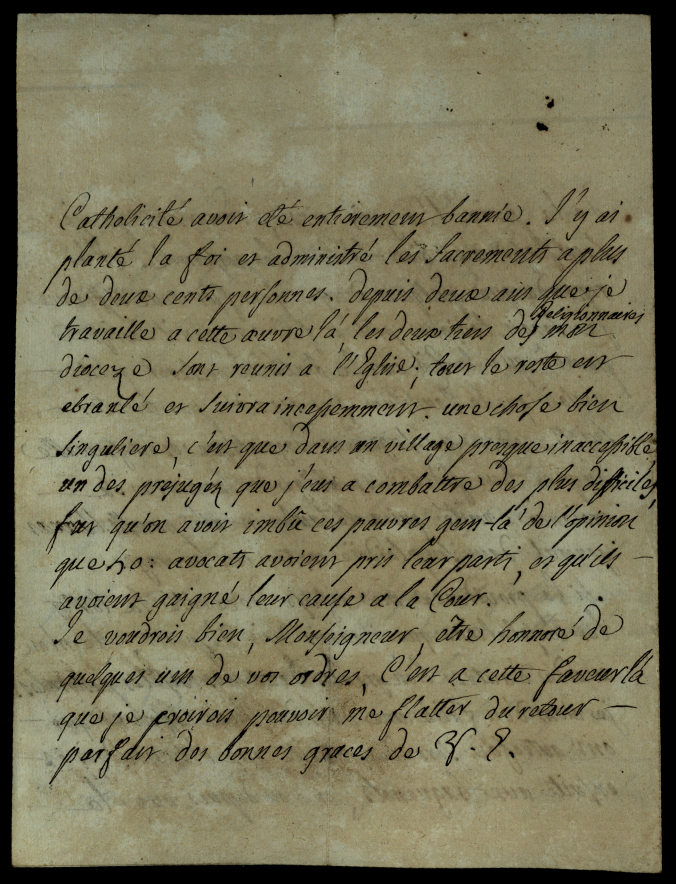 Catholicité avoit été entierement bannie. J'y ai
planté la foi et administré les Sacrements a plus
de deux cents personnes. depuis deux ans que je
travaille a cette œuvre là, les deux tiers des Religionnaires mon
dioceze sont reunis a l'Eglise; tout le reste est
ebranlé et suivra incessemment. une chose bien
singuliere, c'est que dans un village presque inaccessible
un des préjugéz que j'eus a combattre des plus difficiles,
fut qu'on avoit imbû ces pauvres gens-là de l'opinion
que 40: avocats avoient pris leur parti, et qu'ils —
avoient gaigné leur cause a la Cour.
Je voudrois bien, Monseigneur, être honnoré de
quelques uns de vos ordres, C'est a cette faveur là
que je croirois pouvoir me flatter du retour —
parfait des bonnes graces de V. E.